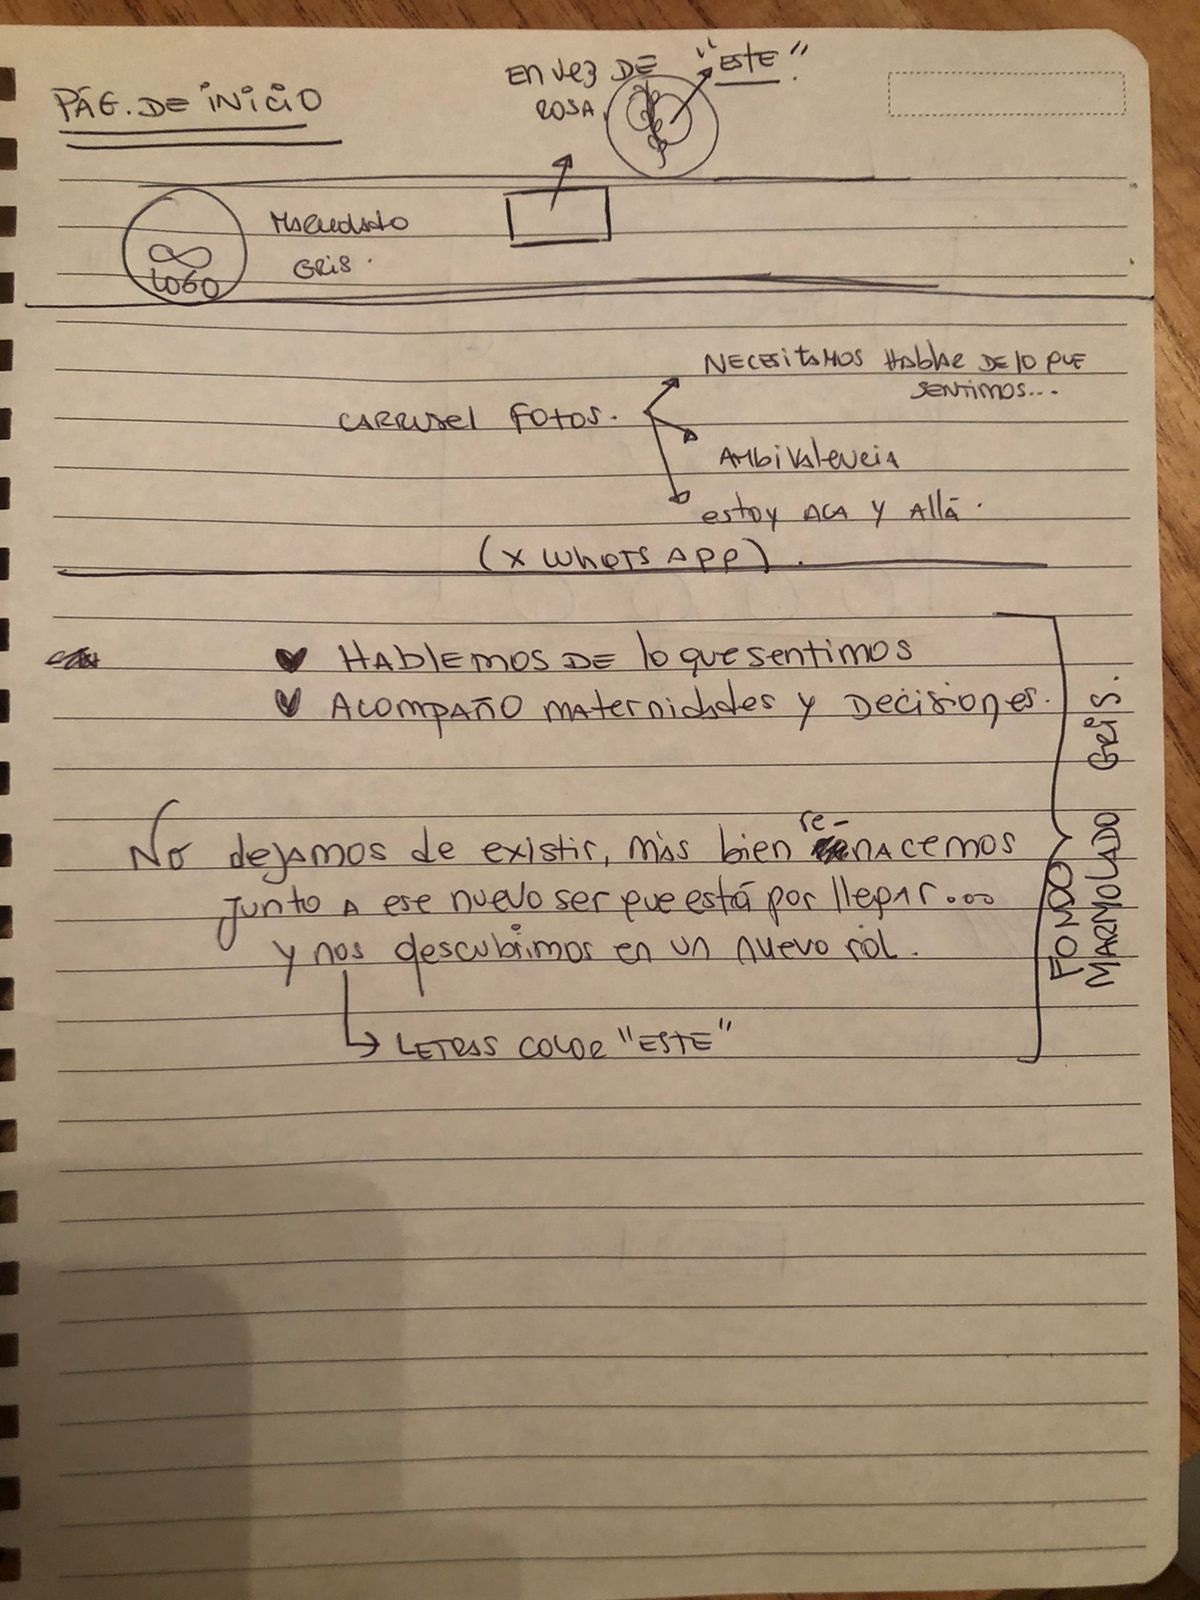 PÁG. DE INICIO
EN VEZ DE "ESTE"
ROSA
LOGO
GRIS.
CARRUSEL FOTOS.
NECESITAMOS HABLAR DE LO QUE
SENTIMOS...
AMBIVALENCIA
estoy ACA Y Allá.
(X WHATSAPP).
HABLEMOS DE lo que sentimos
ACOMPAÑO MATERNIDADES Y DECISIONES.
No dejamos de existir, más bien re-nacemos
junto A ese nuevo ser que está por llegar...
y nos descubrimos en un nuevo rol.
LETRAS COLOR "ESTE"
FONDO
MARMOLADO GRIS.